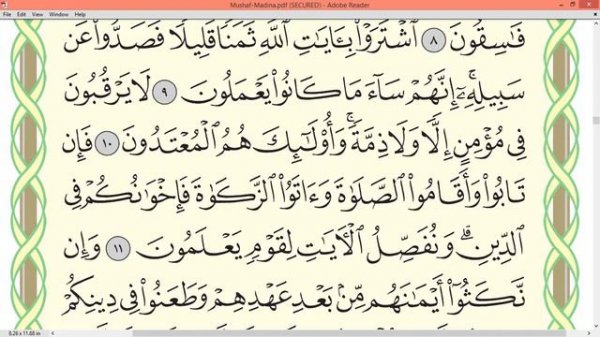 Mushaf-Madina.pdf (SECURED) - Adobe Reader
File Edit View Window Help
فَٰسِقُونَ ٨ ٱشْتَرَوْا۟ بِـَٔايَٰتِ ٱللَّهِ ثَمَنًا قَلِيلًا فَصَدُّوا۟ عَن
سَبِيلِهِۦٓ ۚ إِنَّهُمْ سَآءَ مَا كَانُوا۟ يَعْمَلُونَ ٩ لَا يَرْقُبُونَ
فِى مُؤْمِنٍ إِلًّا وَلَا ذِمَّةً ۚ وَأُو۟لَٰٓئِكَ هُمُ ٱلْمُعْتَدُونَ ١٠ فَإِن
تَابُوا۟ وَأَقَامُوا۟ ٱلصَّلَوٰةَ وَءَاتَوُا۟ ٱلزَّكَوٰةَ فَإِخْوَٰنُكُمْ فِى
ٱلدِّينِ ۗ وَنُفَصِّلُ ٱلْـَٔايَٰتِ لِقَوْمٍ يَعْلَمُونَ ١١ وَإِن
نَّكَثُوٓا۟ أَيْمَٰنَهُم مِّنۢ بَعْدِ عَهْدِهِمْ وَطَعَنُوا۟ فِى دِينِكُمْ
8.26 x 11.68 in